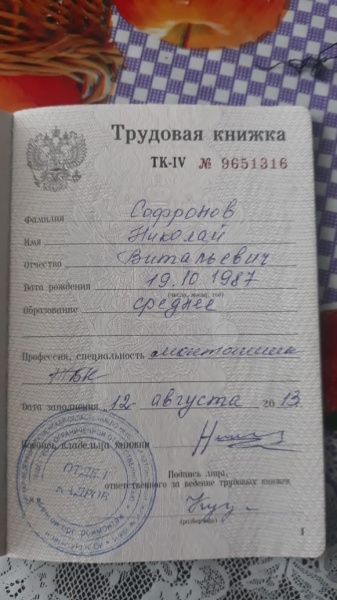 Трудовая книжка
ТК-IV № 9651316
Фамилия Софронов
Имя Николай
Отчество Витальевич
Дата рождения 19.10 1987
(число, месяц, год)
Образование среднее
Профессия, специальность монтажник
ЖБК
Дата заполнения 12 августа 2013
Подпись владельца книжки
ОТДЕЛ
КАДРОВ
Подпись лица,
ответственного за ведение трудовых книжек
(разборчиво)
1